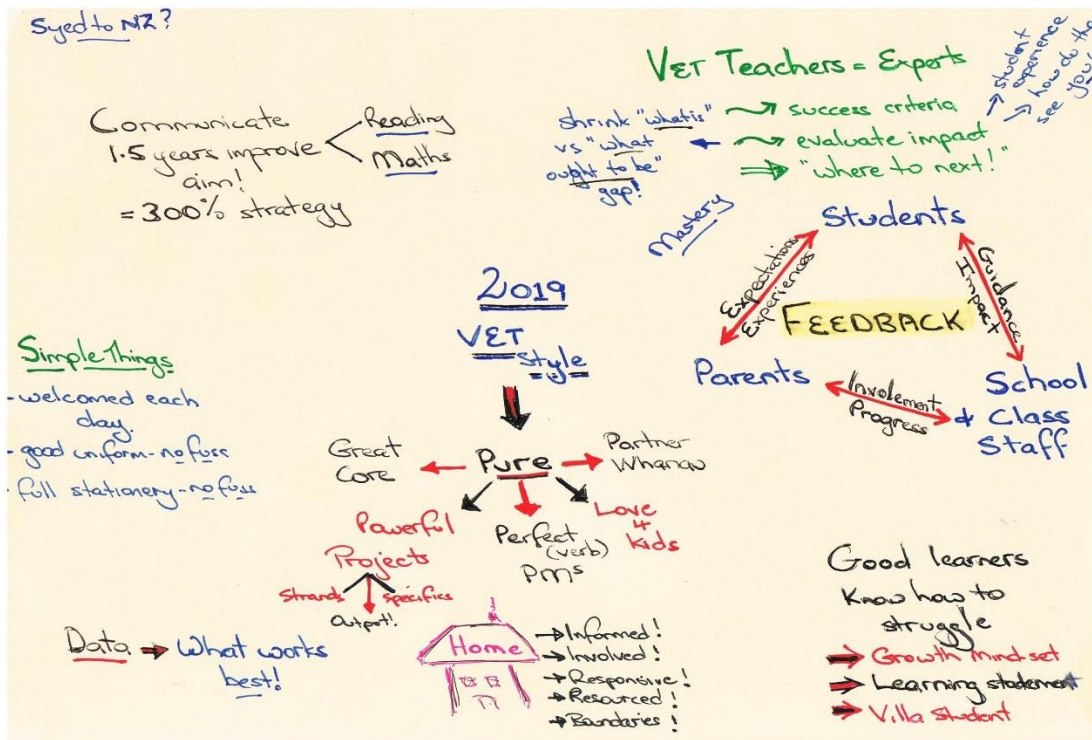 Syed to NZ?
Communicate
1.5 years improve
aim!
= 300% strategy
Reading
Maths
VET Teachers = Experts
success criteria
evaluate impact
"where to next!"
shrink "what is"
vs "what
ought to be"
gap!
student
experience
how do the
see you
Mastery
Students
Expectations
Experiences
Guidance
Impact
FEEDBACK
Parents
Involement
Progress
School
+ Class
Staff
2019
VET
style
Simple Things
- welcomed each
day.
- good uniform - no fuss
- full stationery - no fuss
Pure
Great
Core
Partner
Whanau
Powerful
Projects
Strands
specifics
Output!
Perfect
(verb)
PMs
Love
4
kids
Data
What works
best!
Home
Informed!
Involved!
Responsive!
Resourced!
Boundaries!
Good learners
know how to
struggle
Growth mindset
Learning statement
Villa Student